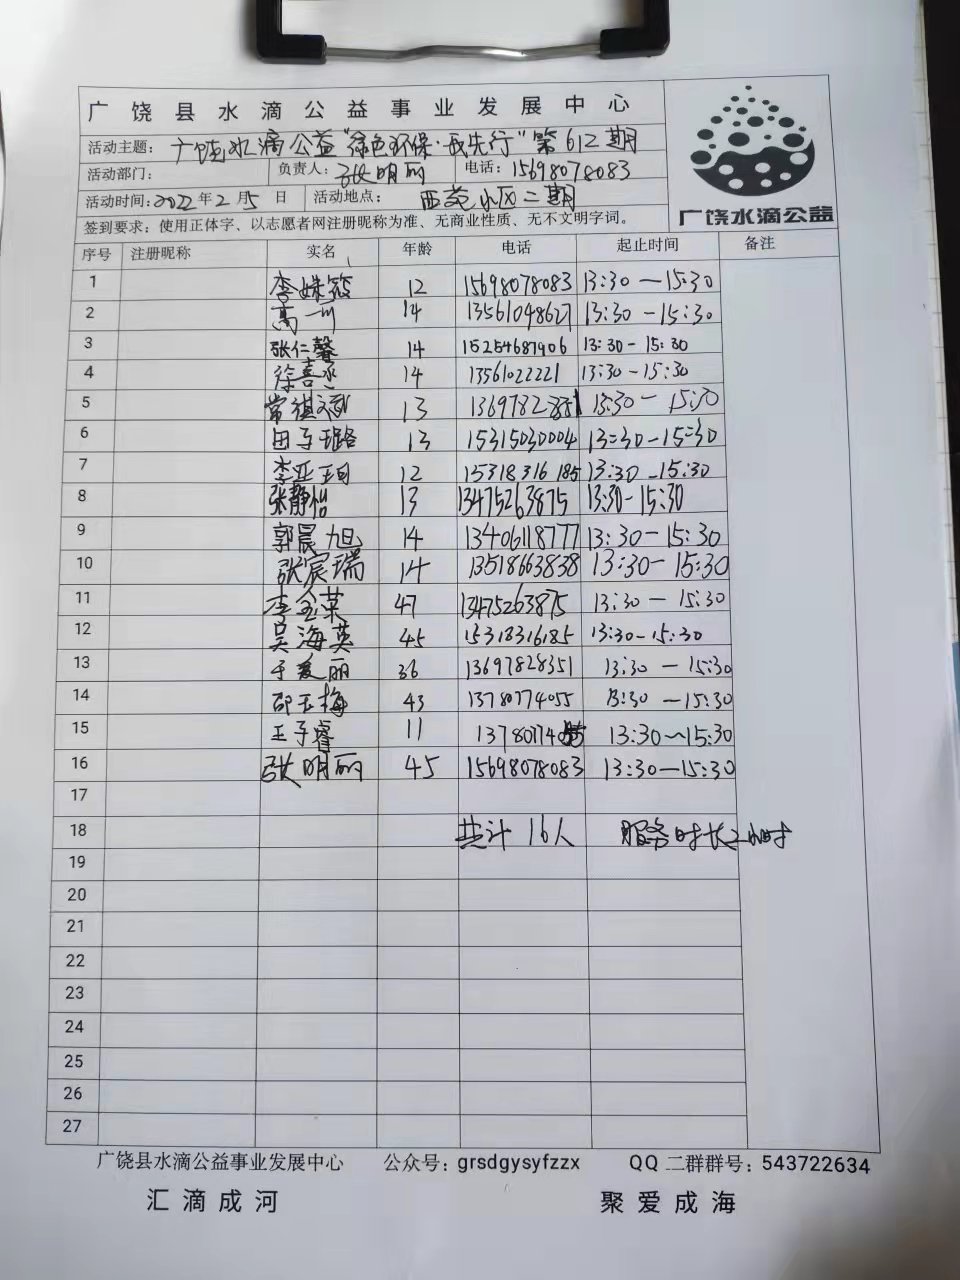 广饶县水滴公益事业发展中心
活动主题：广饶水滴公益"绿色环保·我先行"第612期
活动部门： 负责人：张明丽 电话：15698078083
活动时间：2022年2月5日 活动地点：西苑小区二期
签到要求：使用正体字、以志愿者网注册昵称为准、无商业性质、无不文明字词。
广饶水滴公益
序号 注册昵称 实名 年龄 电话 起止时间 备注
1 李姝筱 12 15698078083 13:30—15:30
2 高一 14 13561048627 13:30-15:30
3 张仁馨 14 15254687906 13:30-15:30
4 徐喜 14 13561022221 13:30-15:30
5 常祺 13 13:30-15:30
6 田子璐 13 15315030004 13:30-15:30
7 李亚 12 15318316185 13:30-15:30
8 张静怡 13 13475263875 13:30-15:30
9 郭晨旭 14 13406118777 13:30-15:30
10 张宸瑞 14 13518663838 13:30-15:30
11 李金菜 47 13475263875 13:30-15:30
12 吴海英 45 15318316185 13:30-15:30
13 于爱丽 36 13697828351 13:30-15:30
14 邵玉梅 43 13780774055 13:30-15:30
15 王子睿 11 13:30~15:30
16 张明丽 45 15698078083 13:30-15:30
17
18 共计16人 服务时长2小时
19
20
21
22
23
24
25
26
27
广饶县水滴公益事业发展中心 公众号：grsdgysyfzzx QQ二群群号：543722634
汇滴成河 聚爱成海